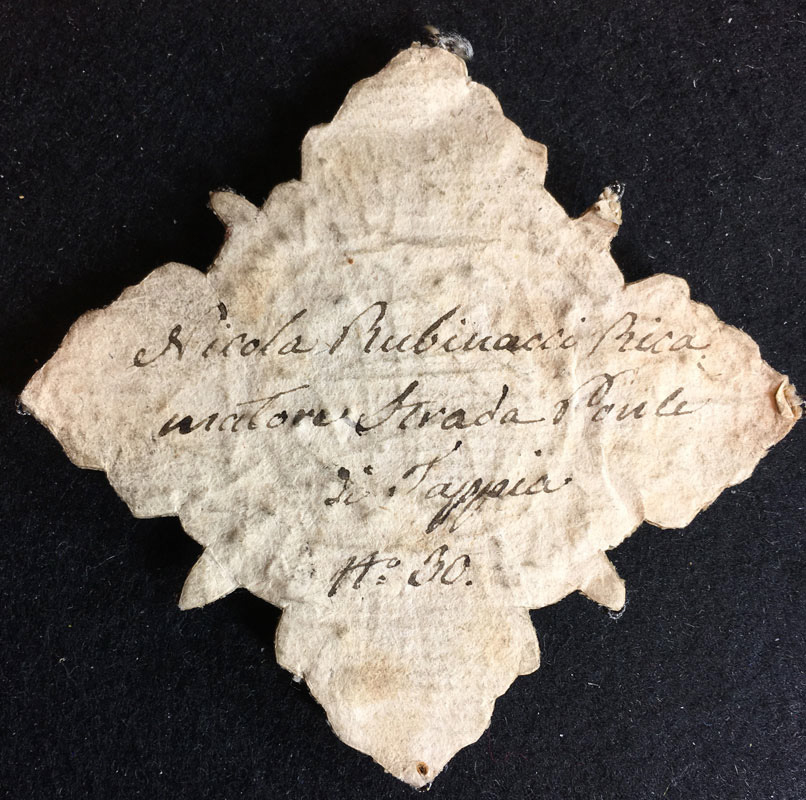 Nicola Rubinacci Rica
matore Strada Ponte
di Tappia
No. 30.